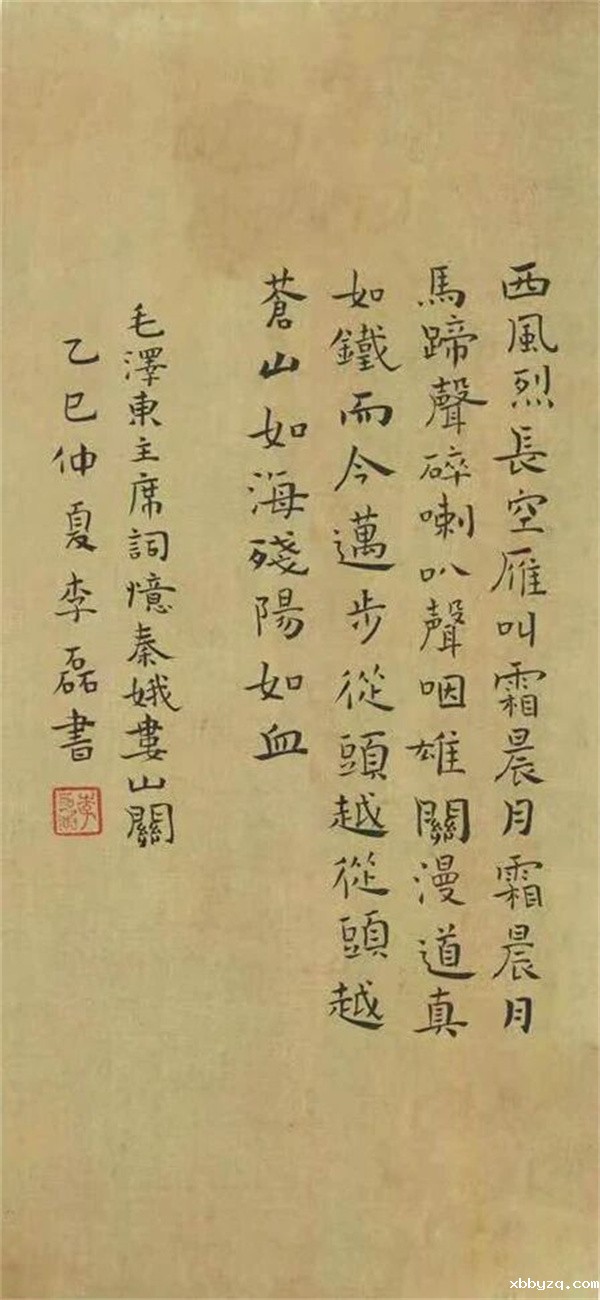 西風烈長空雁叫霜晨月霜晨月
馬蹄聲碎喇叭聲咽雄關漫道真
如鐵而今邁步從頭越從頭越
蒼山如海殘陽如血
毛澤東主席詞憶秦娥婁山關
乙巳仲夏李磊書
xbbyzq.com